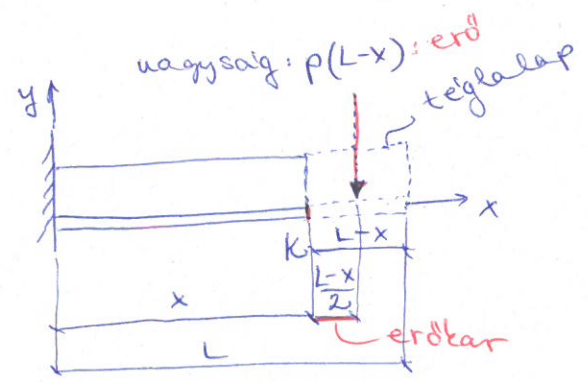 nagyság: p(L-x): erő
téglalap
y
x
K
L-x
L-x
2
x
erőkar
L